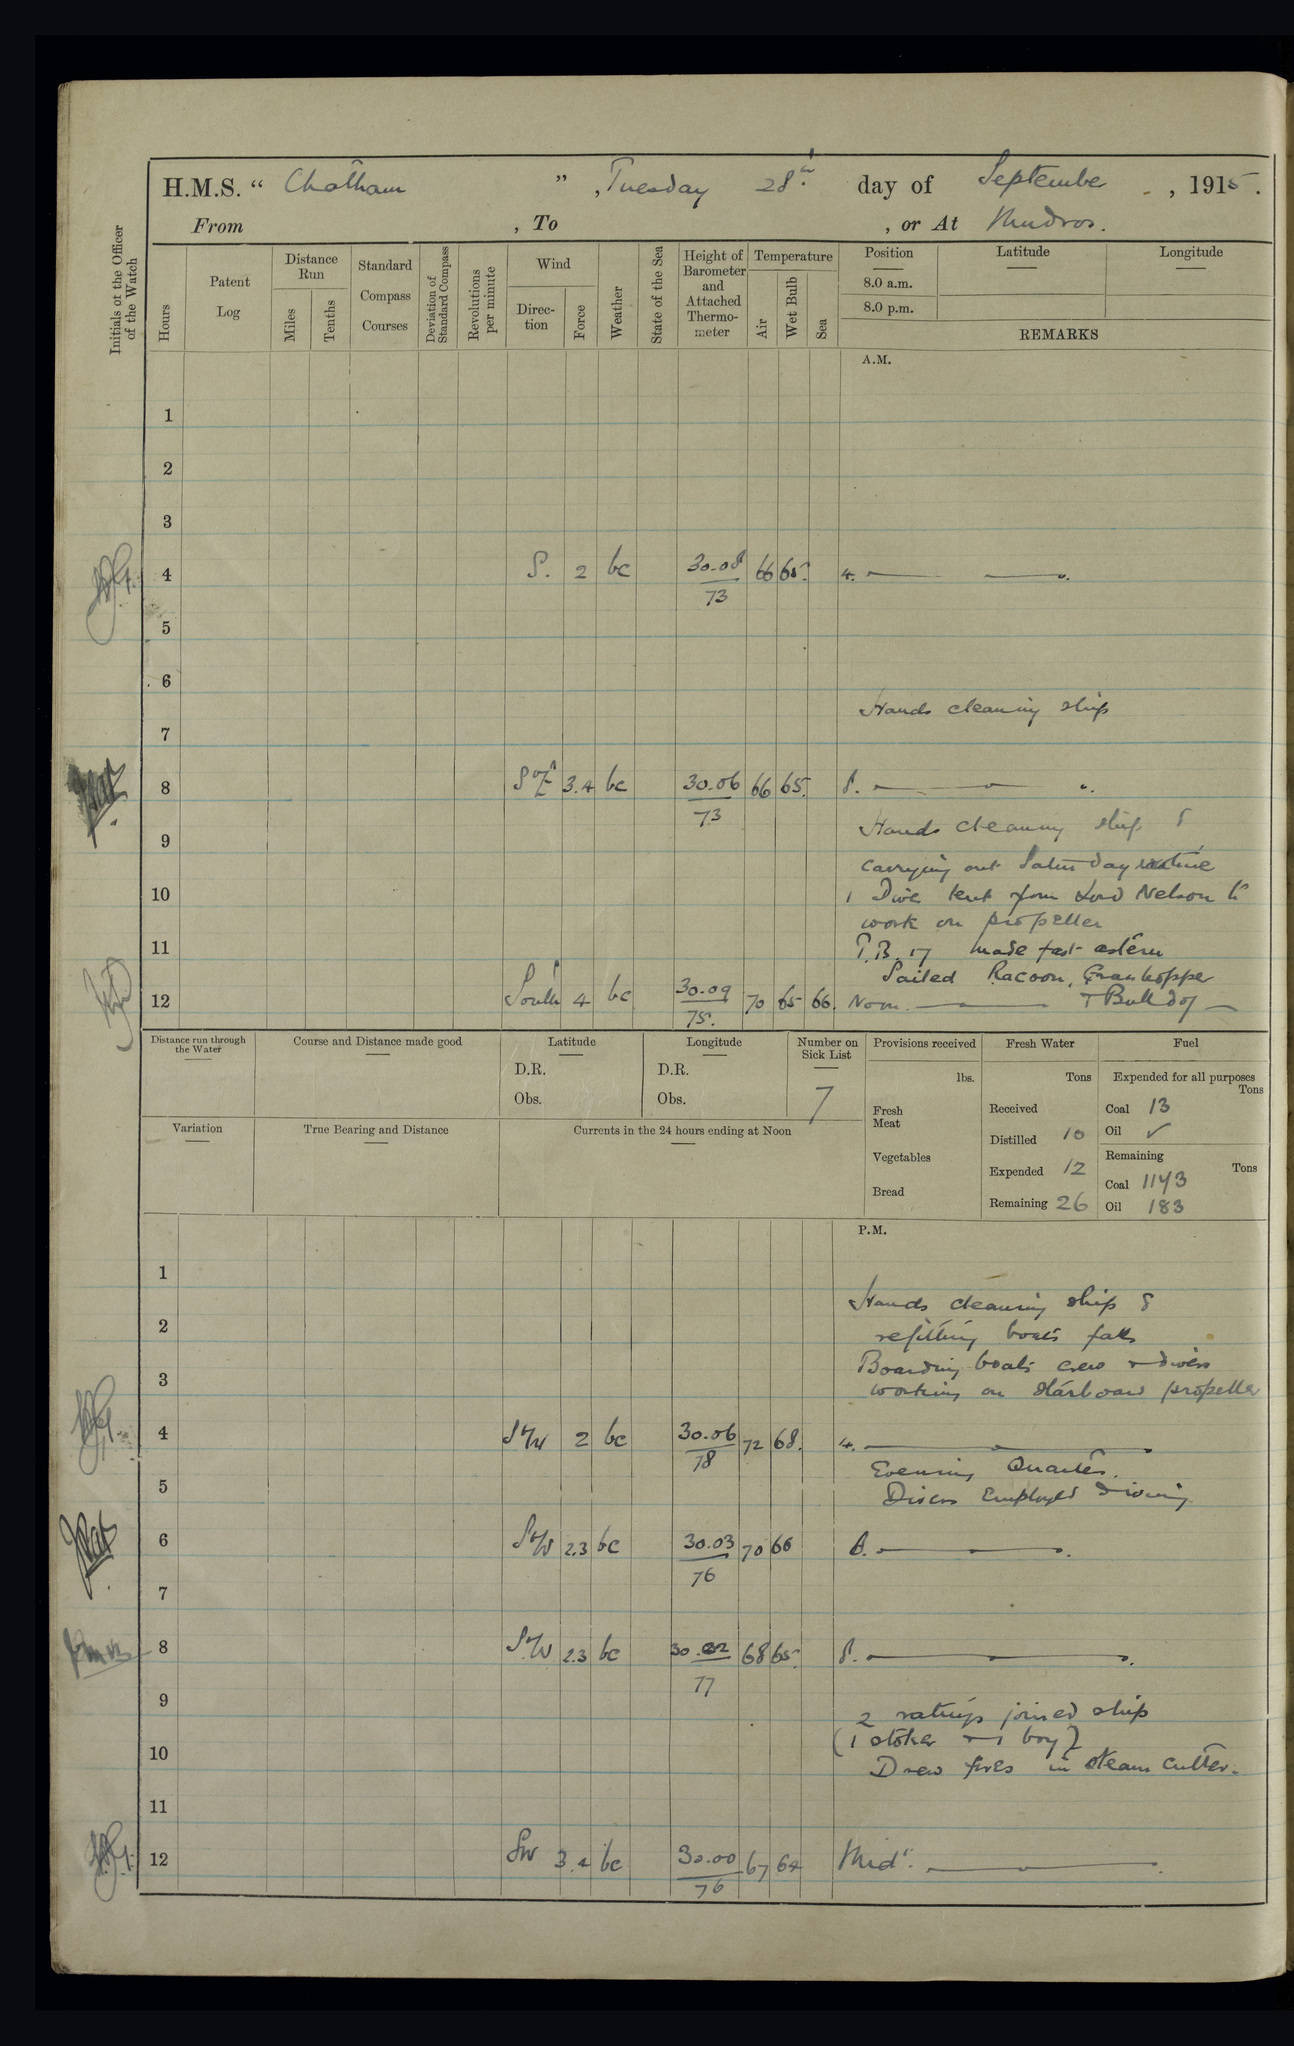 H.M.S. “ Chatham ” , Tuesday 28th day of September , 1915.
From , To , or At Mudros.
Initials of the Officer of the Watch
Hours
Patent Log
Distance Run
Miles
Tenths
Standard Compass Courses
Deviation of Standard Compass
Revolutions per minute
Wind
Direc-tion
Force
Weather
State of the Sea
Height of Barometer and Attached Thermo-meter
Temperature
Air
Wet Bulb
Sea
Position
8.0 a.m.
8.0 p.m.
Latitude
Longitude
REMARKS
A.M.
1
2
3
4 S. 2 bc 30.08 / 73 66 65. 4.
5
6
Hands cleaning ship
7
8 3.4 bc 30.06 / 73 66 65. 8.
Hands cleaning ship &
9
carrying out Saturday routine
10 1 Diver lent from Lord Nelson to
work on propeller
11 T.B. 17 made fast astern
Sailed Racoon, Grasshopper
12 South 4 bc 30.09 / 75. 70 65 66. Noon + Bulldog
Distance run through the Water
Course and Distance made good
Latitude
D.R.
Obs.
Longitude
D.R.
Obs.
Number on Sick List
7
Provisions received
lbs.
Fresh Meat
Vegetables
Bread
Fresh Water
Tons
Received
Distilled 10
Expended 12
Remaining 26
Fuel
Expended for all purposes
Tons
Coal 13
Oil ✓
Remaining
Tons
Coal 1143
Oil 183
Variation
True Bearing and Distance
Currents in the 24 hours ending at Noon
P.M.
1
Hands cleaning ship &
2 refitting boats falls
Boarding boats crew + divers
3 working on starboard propeller
4 2 bc 30.06 / 78 72 68. 4.
Evening Quarters.
5 Divers employed diving
6 2.3 bc 30.03 / 76 70 66 6.
7
8 2.3 bc 30.02 / 77 68 65. 8.
9 2 ratings joined ship
(1 stoker + 1 boy)
10 Drew fires in steam cutter.
11
12 SW 3.4 bc 30.00 / 76 67 64 Midt.